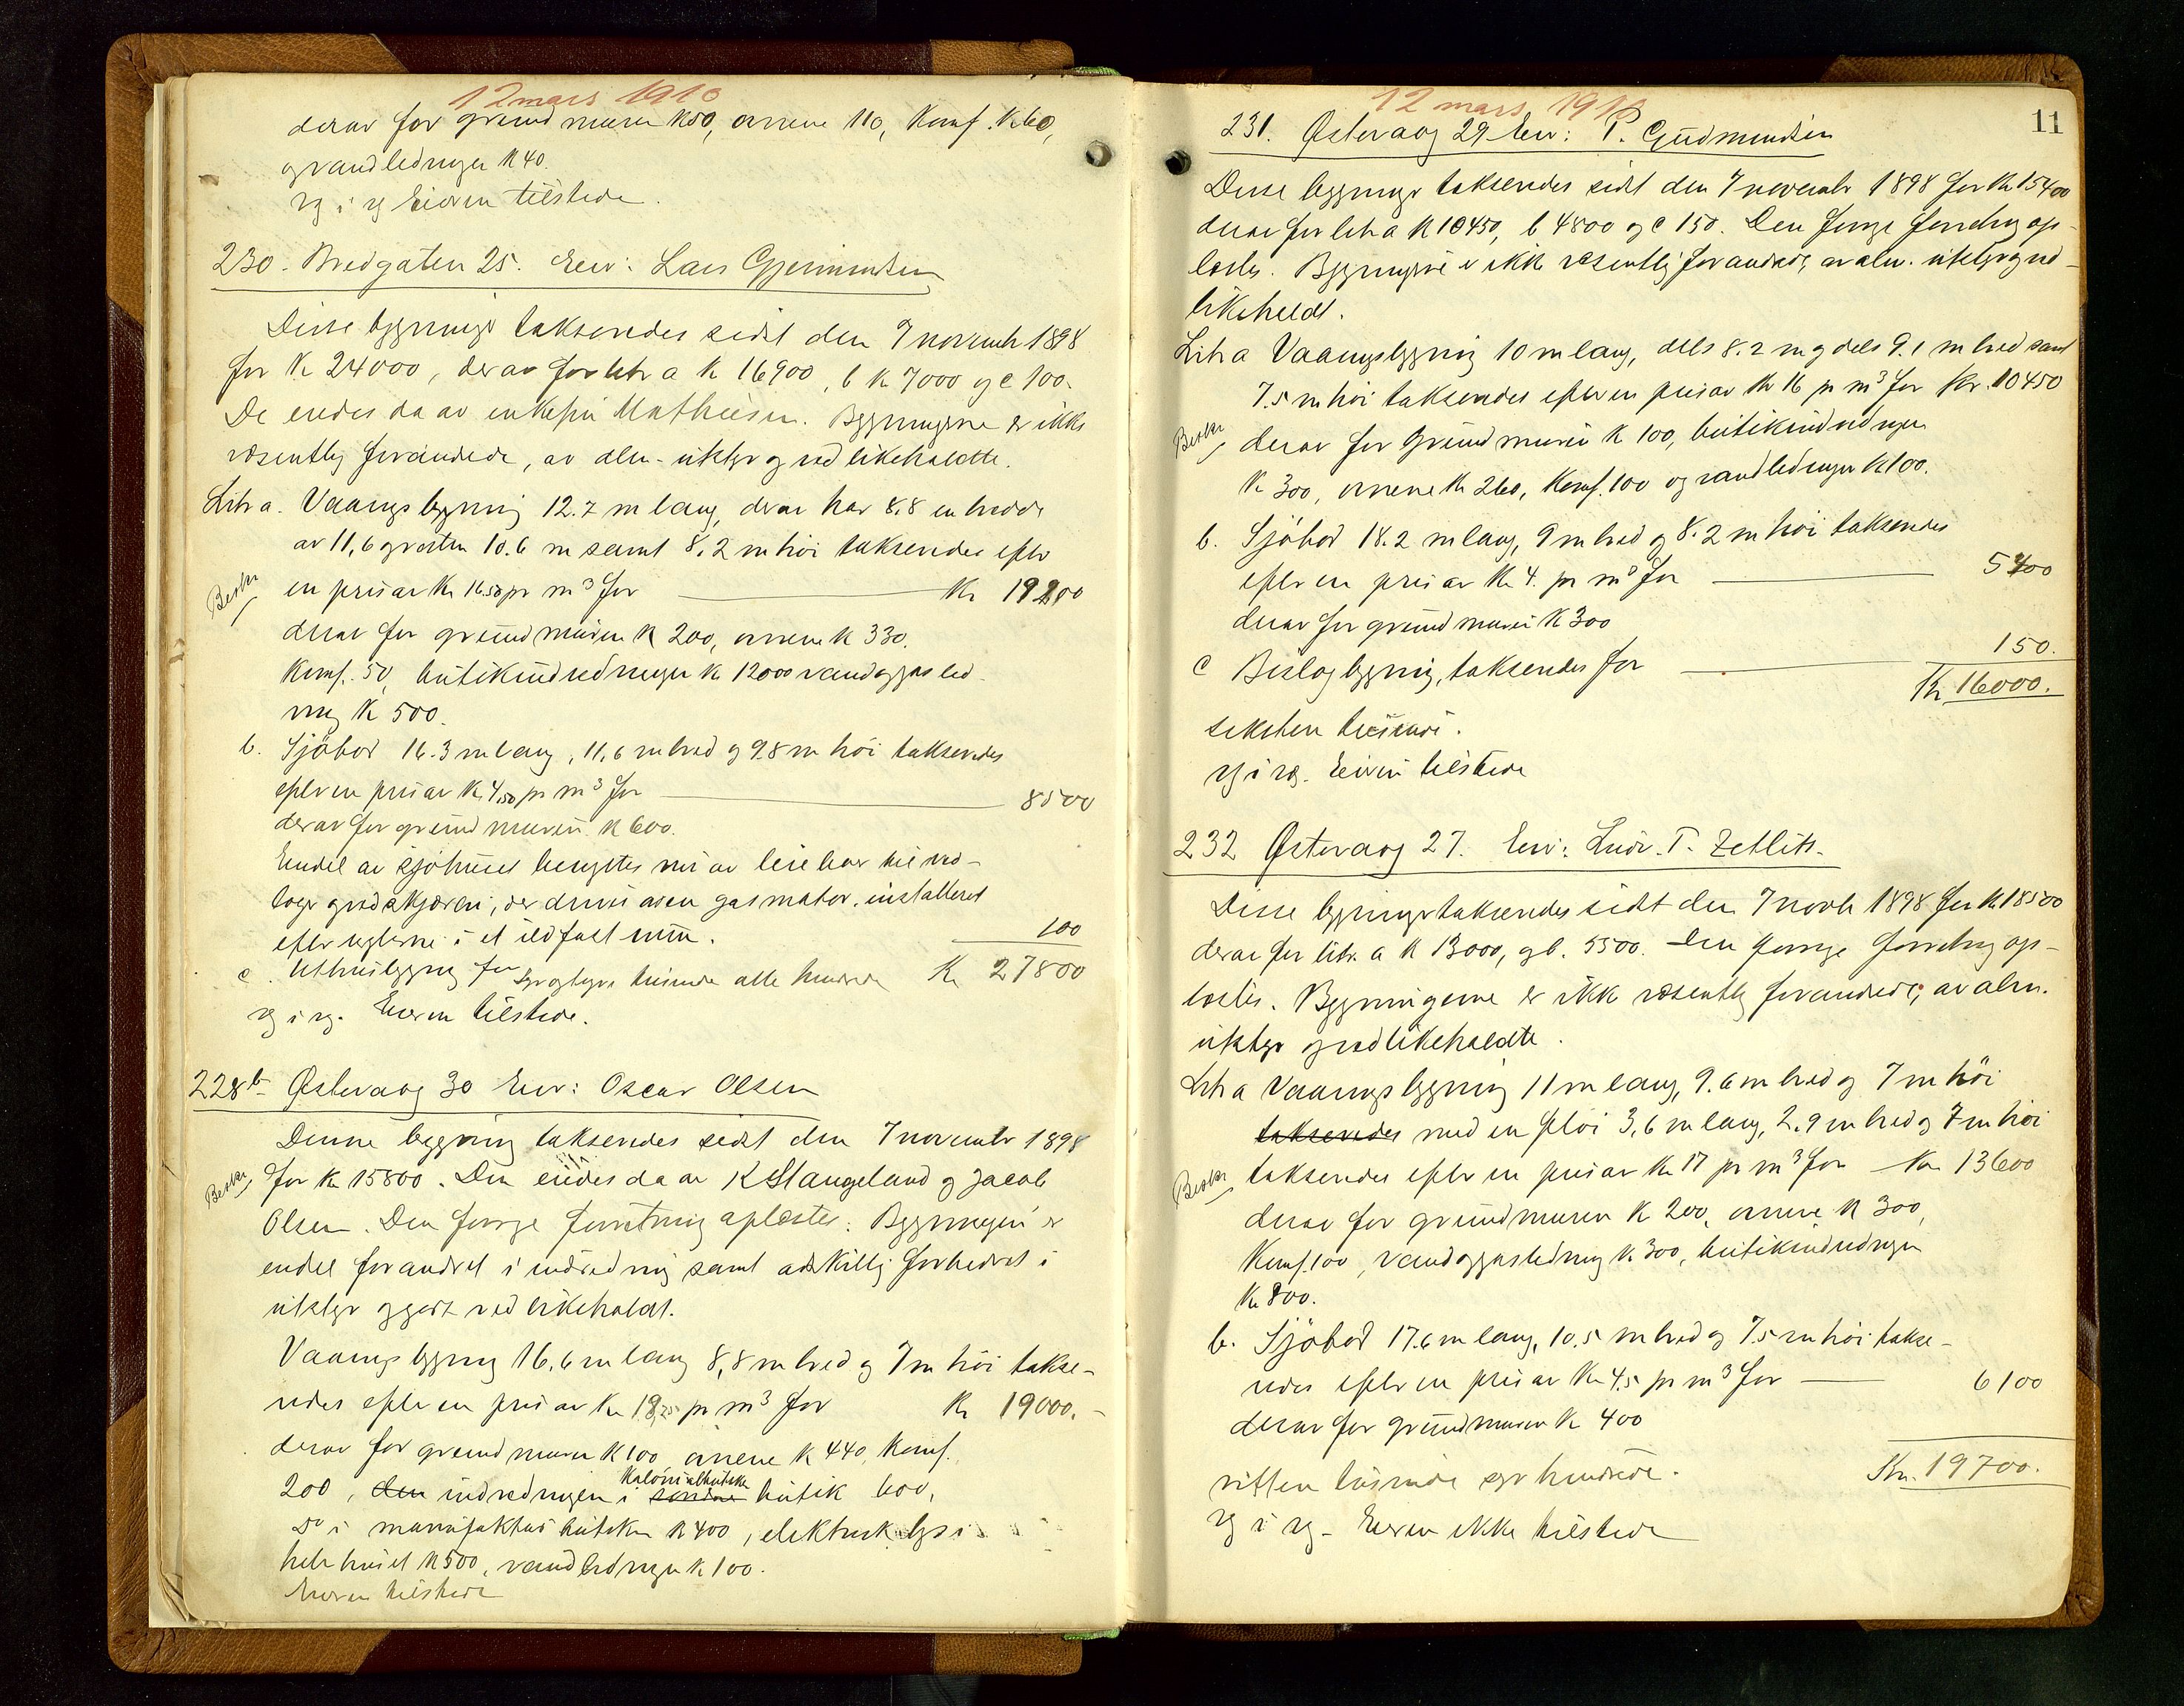 12 mars 1910
derav for grundmuren K 50, ovnene 110, Komf. K 60,
og vandledningen K 40.
Eieren tilstede.
230. Bredgaten 25. Eier: Lars Gjermundsen
Disse bygninger taksertes sidst den 7 novembr 1898
for K 24000, derav for litr a K 16900, b K 7000 og c 100.
De eiedes da av enkefru Mathiesen. Bygningerne er ikke
væsentlig forandrede, av alm. utstyr og vedlikeholdte.
Litr a. Vaaningsbygning 12.7 m lang, derav har 8.8 en bredde
av 11,6 og resten 10.6 m samt 8.2 m høi takseredes efter
Beskr en pris av Kr 16.50 pr m³ for Kr 19200
derav for grundmuren K 200, ovnene K 330.
Komf. 50, butikindredningen K 1200 vand og gasled-
ning K 500.
b. Sjøbod 16.3 m lang, 11,6 m bred og 9.8 m høi takseredes
efter en pris av K 4,50 pr m³ for 8500
derav for grundmuren K 600.
Endel av sjøhuset benyttes nu av leieboer til ved-
lager og vedskjæreri, der drives av en gasmotor, installeret
efter reglerne i et ildfast rum.
c. Uthusbygning for 100
syvogtyve tusinde otte hundrede Kr 27800
Eieren tilstede.
228b Østervaag 30 Eier: Oscar Olsen
Denne bygning takseredes sidst den 7 novembr 1898
Beskr for Kr 15800. Den eiedes da av K Stangeland og Jacob
Olsen. Den forrige forretning oplæstes. Bygningen er
endel forandret i indredning samt adskillig forbedret i
utstyr og godt vedlikeholdt.
Vaaningsbygning 16,6 m lang 8,8 m bred og 7 m høi takse-
redes efter en pris av Kr 18,25 pr m³ for Kr 19000.-
derav for grundmuren K 100 ovnene K 440, Komf.
200, den indredningen i søndre Kolonialbutikk butik 600,
Do i manufakturbutiken K 400, elektrisk lys i
hele huset K 500, vandledningen K 100.
Eieren tilstede
12 mars 1910
11
231. Østervaag 29 Eier: P. Gudmundsen
Disse bygninger takseredes sidst den 7 novembr 1898 for Kr 15400
derav for litr a K 10450, b 4800 og c 150. Den forrige forretning op-
læstes. Bygningerne er ikke væsentlig forandrede, av alm. utstyr og ved-
likeholdt.
Litr a Vaaningsbygning 10 m lang, dels 8.2 m og dels 9.1 m bred samt
7.5 m høi takseredes efter en pris av Kr 16 pr m³ for Kr. 10450
Beskr derav for Grundmuren K 100, butikindredningen
K 300, ovnene K 260, Komf. 100 og vandledningen K 100.
b. Sjøbod 18.2 m lang, 9 m bred og 8.2 m høi takseredes
efter en pris av Kr 4. pr m³ for 5400
derav for grundmuren K 300
c Beslagbygning, takseredes for 150.
Kr 16000.
seksten tusinde.
Eieren tilstede
232 Østervaag 27. Eier: Ludv. T. Zetlitz.
Disse bygninger takseredes sidst den 7 novbr 1898 for Kr 18500
derav for litr. a K 13000, og b. 5500. Den forrige forretning op-
læstes. Bygningerne er ikke væsentlig forandrede, av alm.
utstyr og vedlikeholdte.
Litr a Vaaningsbygning 11 m lang, 9.6 m bred og 7 m høi
takseredes med en fløi 3,6 m lang, 2.9 m bred og 7 m høi
Beskr takseredes efter en pris av Kr 17 pr m³ for Kr 13600
derav for grundmuren K 200, ovnene K 300,
Komf. 100, vand og gasledning K 300, butikindredningen
Kr 800.
b. Sjøbod 17.6 m lang, 10.5 m bred og 7.5 m høi takse-
redes efter en pris av Kr 4.5 pr m³ for 6100
derav for grundmuren K 400
nitten tusinde syv hundrede. Kr. 19700.
Eieren ikke tilstede